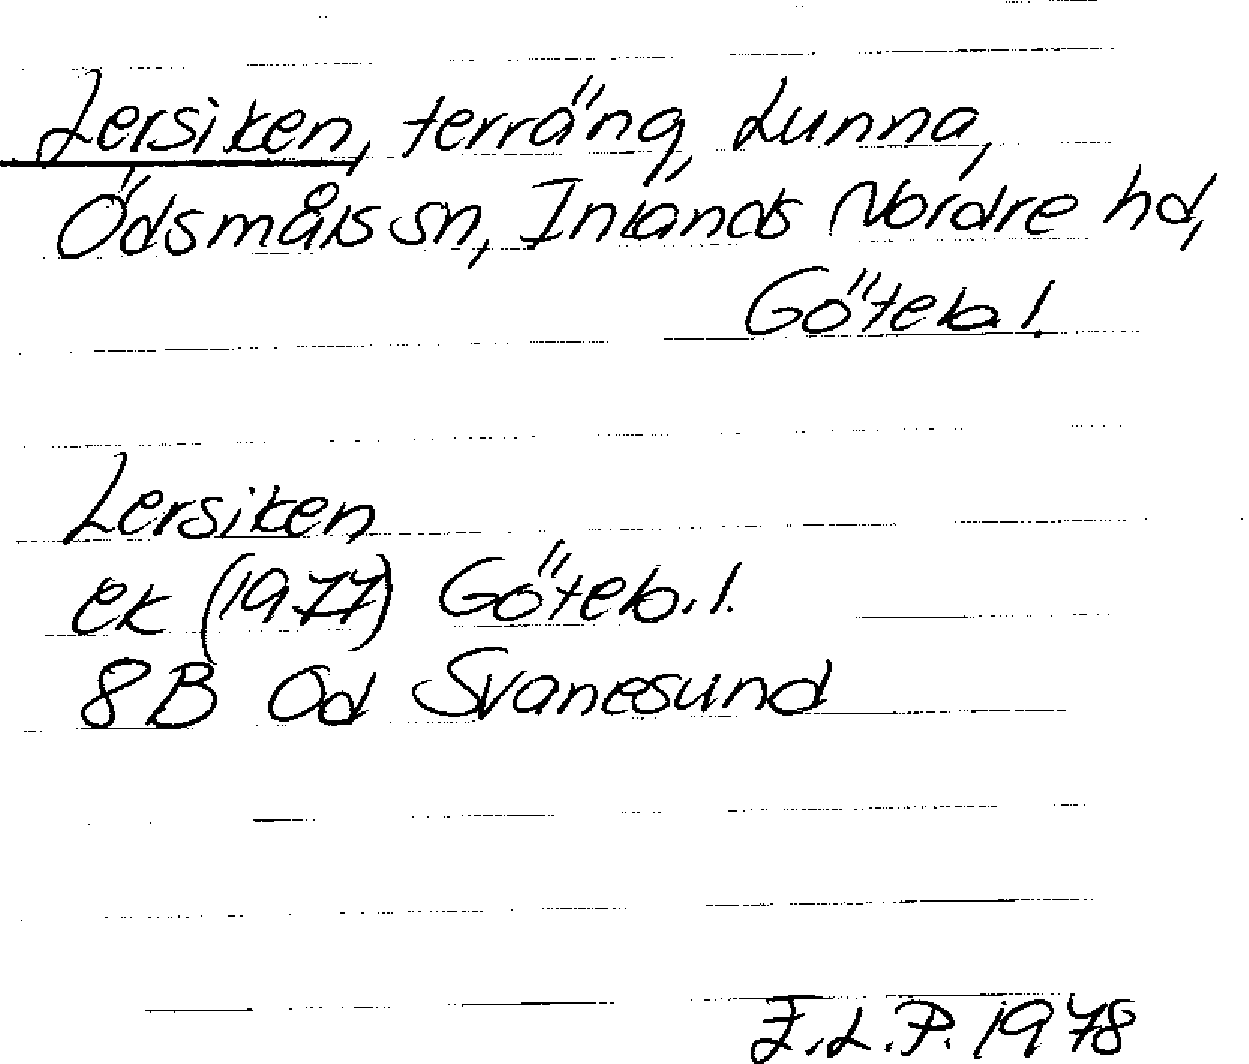 Lersiken, terräng, Lunna,
Ödsmåls sn, Inlands Nordre hd,
Göteb. l.
Lersiken
ek (1977) Göteb. l.
8B Od Svanesund
E.L.P. 1978